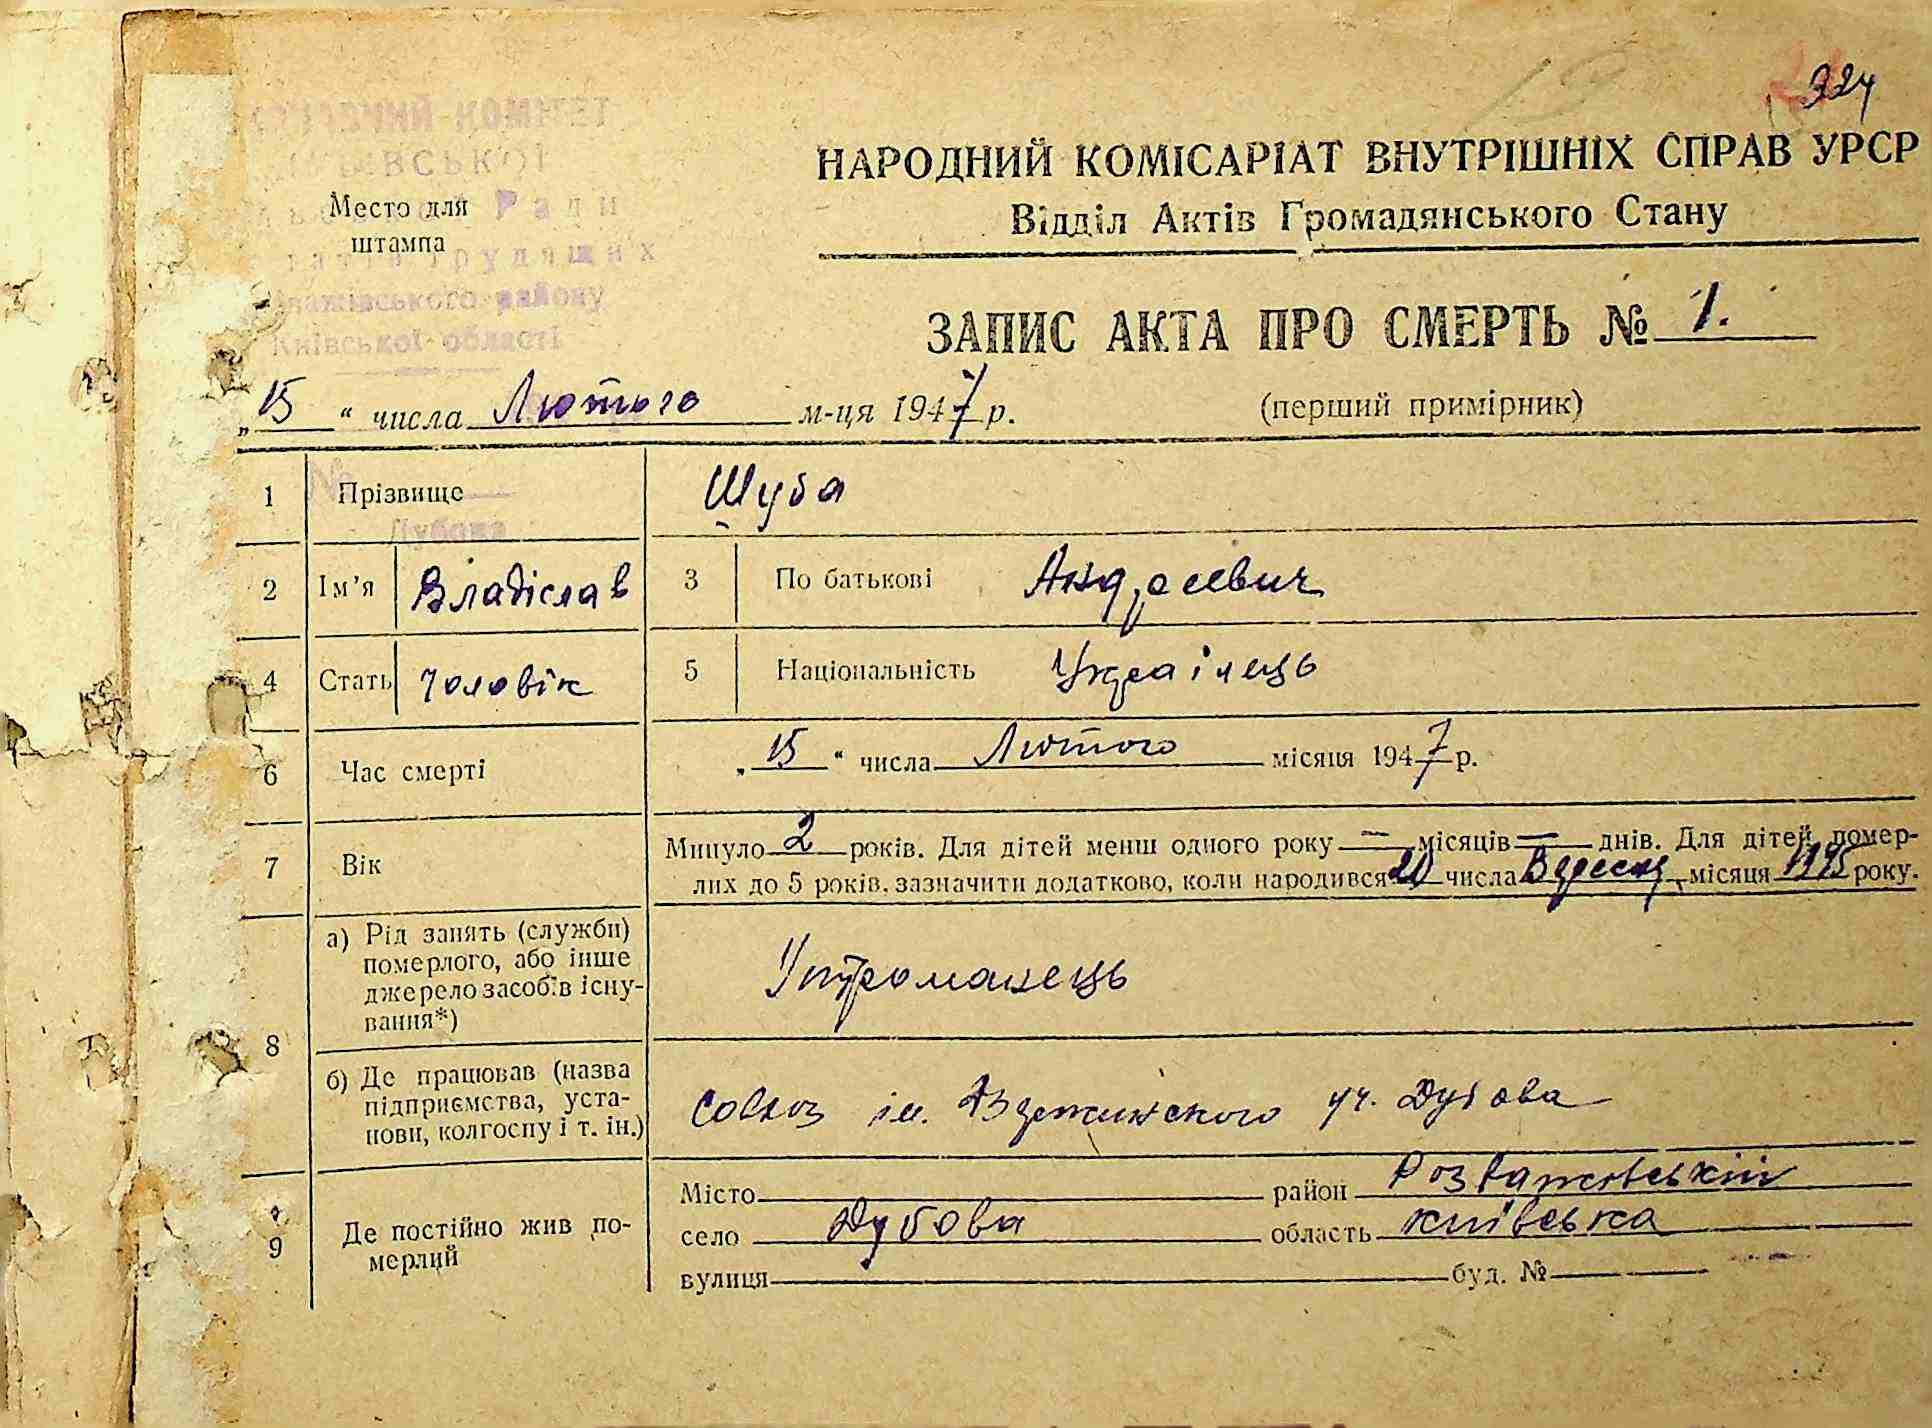 224
КОМІТЕТ
Ради
трудящих
району
Київської області
Место для
штампа
НАРОДНИЙ КОМІСАРІАТ ВНУТРІШНІХ СПРАВ УРСР
Відділ Актів Громадянського Стану
ЗАПИС АКТА ПРО СМЕРТЬ № 1.
„15“ числа Лютого м-ця 1947 р.
(перший примірник)
1 Прізвище Шуба
№
Дубова
2 Ім’я Владіслав 3 По батькові Андреевич
4 Стать Чоловік 5 Національність Українець
6 Час смерті „15“ числа Лютого місяця 1947 р.
7 Вік Минуло 2 років. Для дітей менш одного року — місяців — днів. Для дітей, помер-
лих до 5 років, зазначити додатково, коли народився 20 числа Вересня місяця 1945 року.
8 а) Рід занять (служби)
померлого, або інше
джерело засобів існу-
вання*)
Утроманець
б) Де працював (назва
підприємства, уста-
нови, колгоспу і т. ін.)
Совхоз ім. Дзержинского уч. Дубова
9 Де постійно жив по-
мерлий
Місто район Розважевський
село Дубова область київська
вулиця буд. № —